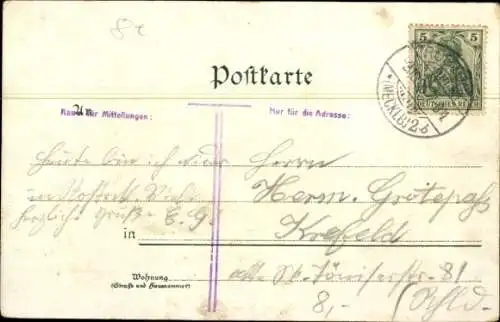 5 5
DEUTSCHES REICH
(MECKLB)
Postkarte
An
Raum für Mitteilungen:
Nur für die Adresse:
Heute bin ich
in Rostock. Viele
herzliche Grüße E. G.
Herrn
Herm. Grötepaß
in Krefeld
Wohnung
(Straße und Hausnummer)
alte St. Töniserstr. 81
8,-
(Rhld.